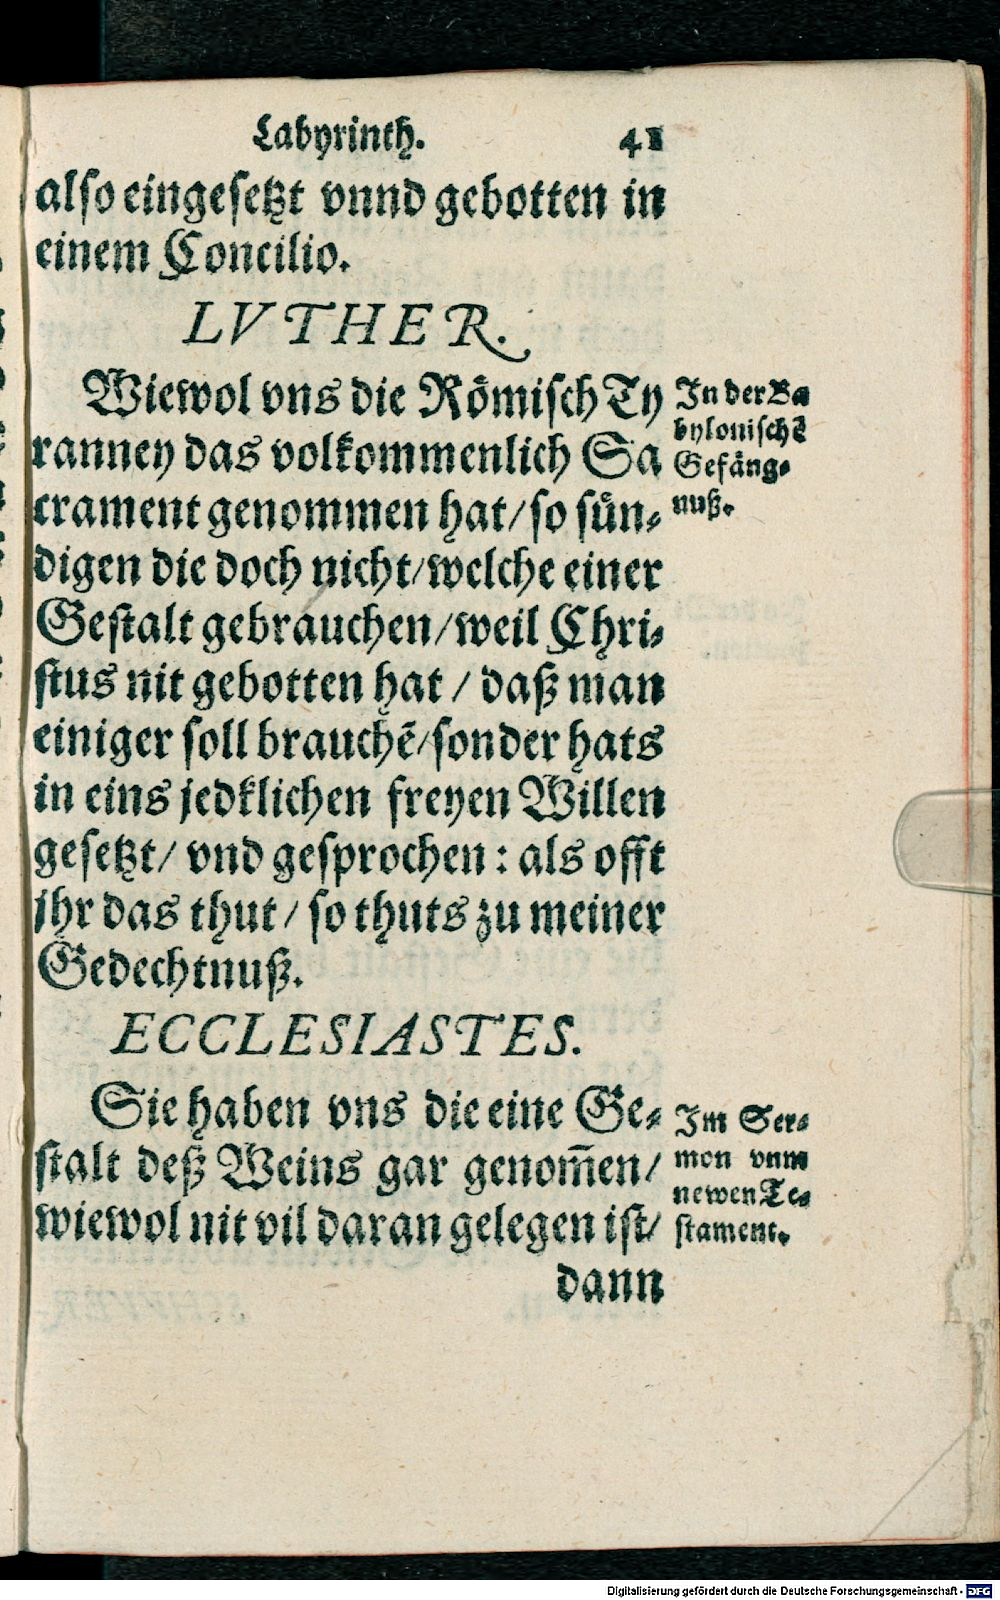 Labyrinth. 41
also eingesetzt vnnd gebotten in
einem Concilio.
LVTHER.
Wiewol vns die Römisch Ty
ranney das volkommenlich Sa
crament genommen hat/ so sün-
digen die doch nicht/ welche einer
Gestalt gebrauchen/ weil Chri-
stus nit gebotten hat / daß man
einiger soll brauchẽ/ sonder hats
in eins jedklichen freyen Willen
gesetzt/ vnd gesprochen : als offt
jhr das thut / so thuts zu meiner
Gedechtnuß.
In der Ba
bylonischẽ
Gefäng-
nuß.
ECCLESIASTES.
Sie haben vns die eine Ge-
stalt deß Weins gar genom̃en/
wiewol nit vil daran gelegen ist/
dann
Im Ser-
mon vnm
newen Te-
stament.
Digitalisierung gefördert durch die Deutsche Forschungsgemeinschaft - DFG